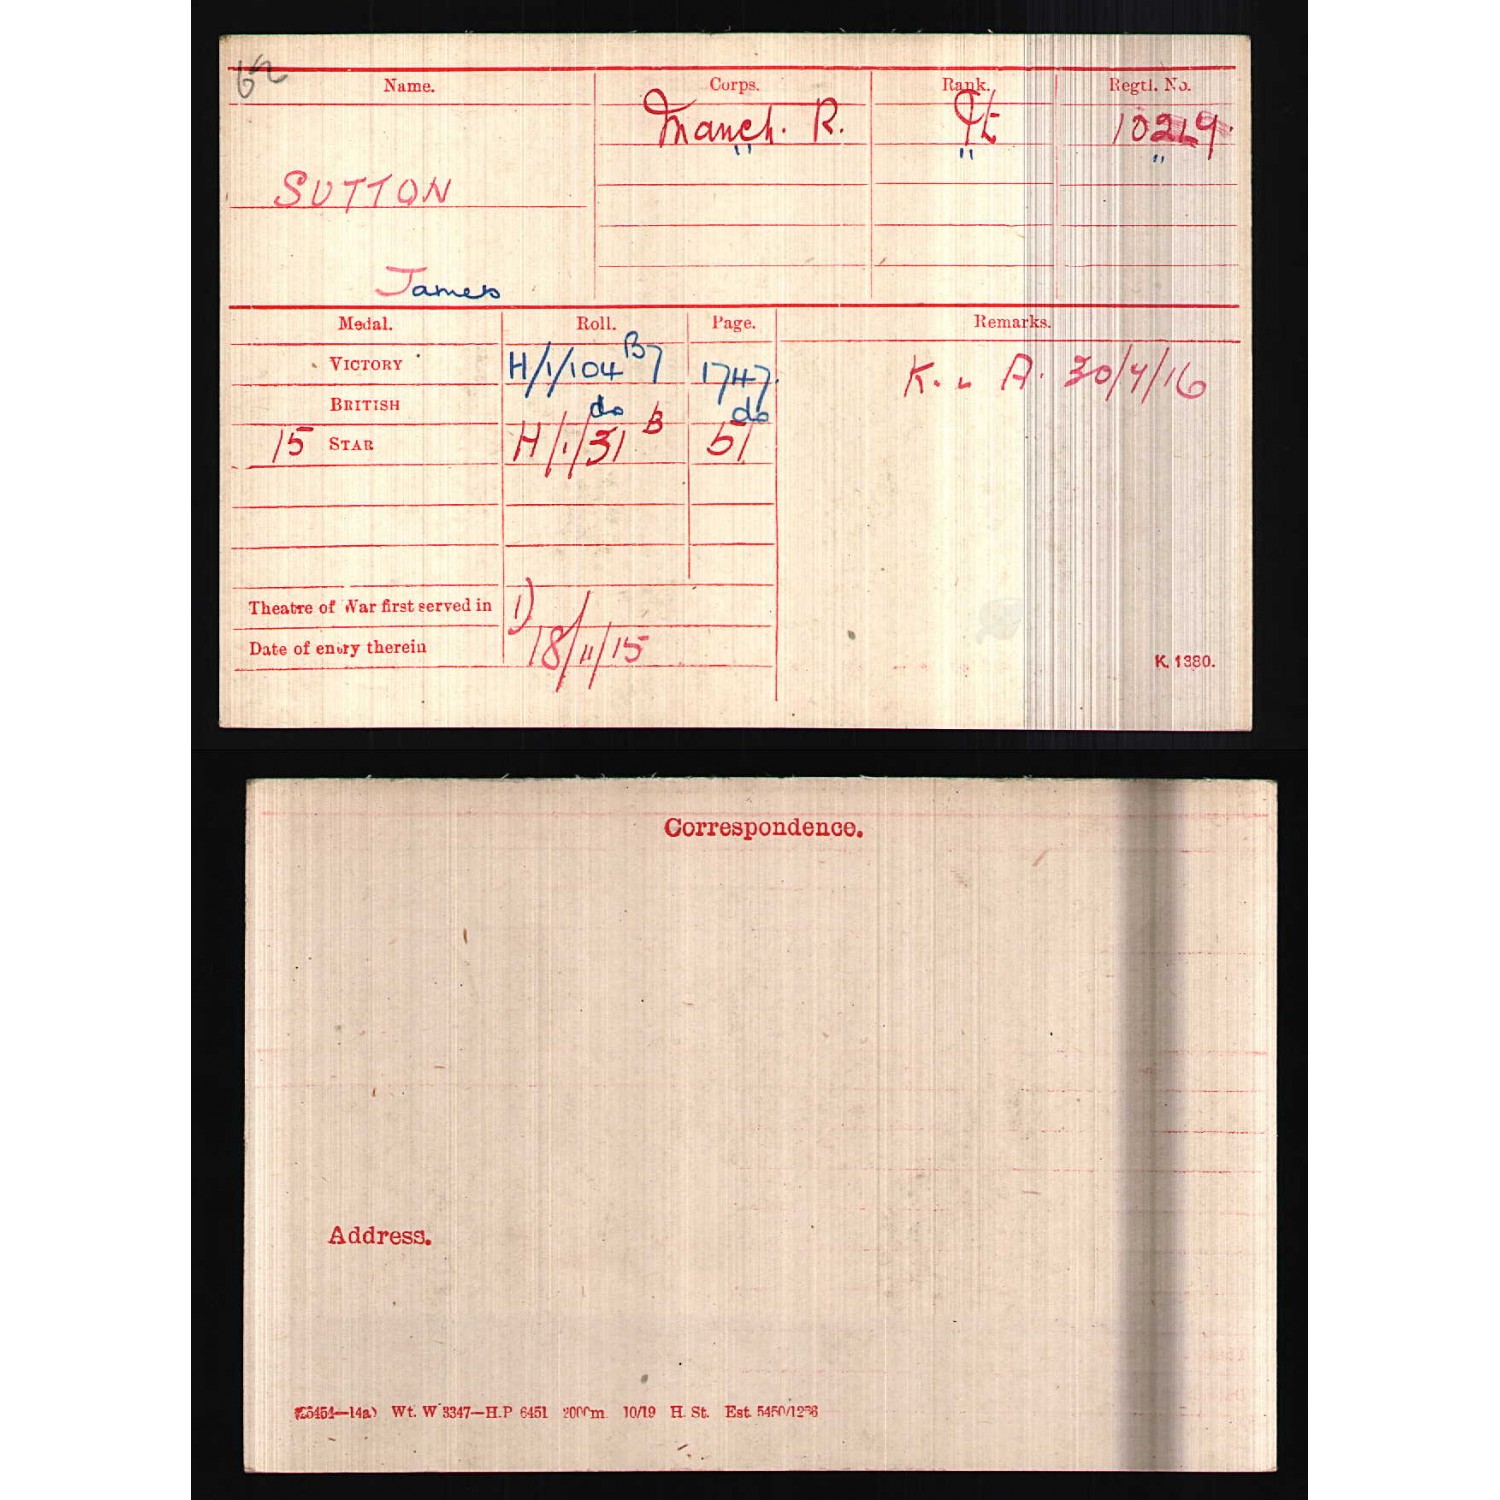 62
Name. Corps. Rank. Regtl. No.
Manch. R. Pt 10219.
" " "
SUTTON
James
Medal. Roll. Page. Remarks.
VICTORY H/1/104 B7 1747. K. in A. 30/4/16
BRITISH do do
15 STAR H/1/31 B 51
Theatre of War first served in 1)
Date of entry therein 18/11/15
K. 1380.
Correspondence.
Address.
Wt. W 3347—H.P 6451 2000m 10/19 H. St. Est. 5450/1236